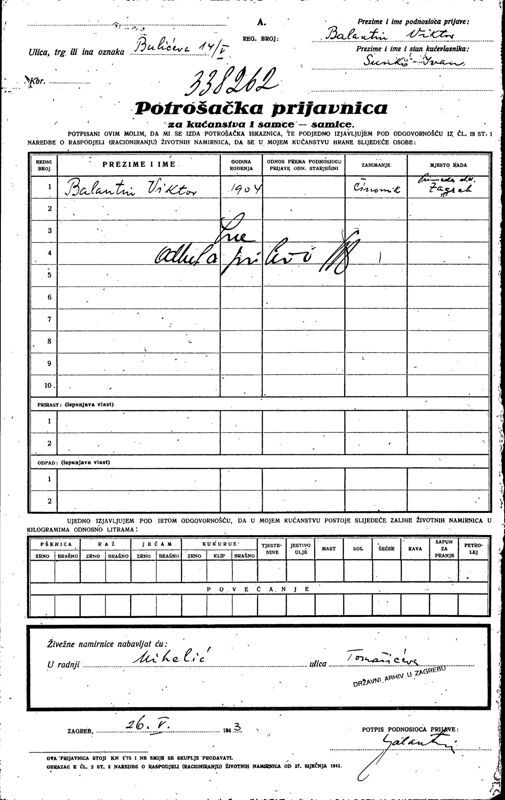 A.
Prezime i ime podnosioca prijave:
Balantin Viktor
Ulica, trg ili ina oznaka Bulićeva 14/V
REG. BROJ:
Prezime i ime i stan kućevlasnika:
Sunko Ivan
Kbr.
338262
Potrošačka prijavnica
za kućanstva i samce — samice.
POTPISANI OVIM MOLIM, DA MI SE IZDA POTROŠAČKA ISKAZNICA, TE PODJEDNO IZJAVLJUJEM POD ODGOVORNOŠĆU IZ ČL. 18 ST. 1
NAREDBE O RASPODJELI (RACIONIRANJU) ŽIVOTNIH NAMIRNICA, DA SE U MOJEM KUĆANSTVU HRANE SLIJEDEĆE OSOBE:
REDNI BROJ PREZIME I IME GODINA ROĐENJA ODNOS PREMA PODNOSIOCU PRIJAVE ODN. STARJEŠINI ZANIMANJE MJESTO RADA
1 Balantin Viktor 1904 Činovnik Zagreb
2
3
4
5
6
7
8
9
10
PRIRAST: (ispunjava vlast)
1
2
OTPAD: (ispunjava vlast)
1
2
UJEDNO IZJAVLJUJEM POD ISTOM ODGOVORNOŠĆU, DA U MOJEM KUĆANSTVU POSTOJE SLIJEDEĆE ZALIHE ŽIVOTNIH NAMIRNICA U
KILOGRAMIMA ODNOSNO LITRAMA:
PŠENICA RAŽ JEČAM KUKURUZ TJESTENINE JESTIVO ULJE MAST SOL ŠEĆER KAVA SAPUN ZA PRANJE PETROLEJ
ZRNO BRAŠNO ZRNO BRAŠNO ZRNO BRAŠNO ZRNO KLIP BRAŠNO
POVEĆANJE
Živežne namirnice nabavljat ću:
U radnji Mihelić ulica Tomašićeva
DRŽAVNI ARHIV U ZAGREBU
ZAGREB, 26. V. 1943
POTPIS PODNOSIOCA PRIJAVE:
Balantin
OVA PRIJAVNICA STOJI KN 1.75 I NE SMIJE SE SKUPLJE PRODAVATI.
OBRAZAC K ČL. 2 ST. 2 NAREDBE O RASPODJELI (RACIONIRANJU) ŽIVOTNIH NAMIRNICA OD 27. SIJEČNJA 1941.